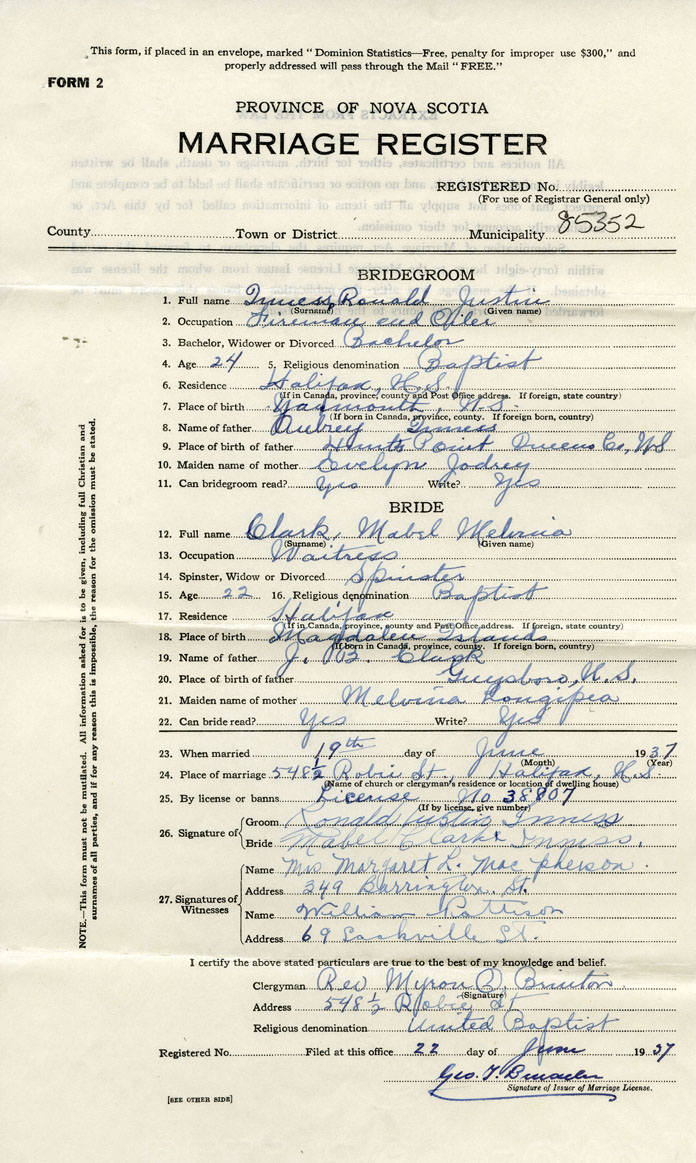 This form, if placed in an envelope, marked "Dominion Statistics—Free, penalty for improper use $300," and
properly addressed will pass through the Mail "FREE."
FORM 2
PROVINCE OF NOVA SCOTIA
MARRIAGE REGISTER
REGISTERED No.
(For use of Registrar General only)
85352
County Town or District Municipality
BRIDEGROOM
1. Full name Inness, Ronald Justin
(Surname) (Given name)
2. Occupation Fireman and Oiler
3. Bachelor, Widower or Divorced Bachelor
4. Age 24 5. Religious denomination Baptist
6. Residence Halifax, N.S.
(If in Canada, province, county and Post Office address. If foreign, state country)
7. Place of birth Yarmouth, N.S.
(If born in Canada, province, county. If foreign born, country)
8. Name of father Aubrey Inness
9. Place of birth of father Hunts Point Queens Co, N.S
10. Maiden name of mother Evelyn Jodrey
11. Can bridegroom read? Yes Write? Yes
BRIDE
12. Full name Clark, Mabel Melvina
(Surname) (Given name)
13. Occupation Waitress
14. Spinster, Widow or Divorced Spinster
15. Age 22 16. Religious denomination Baptist
17. Residence Halifax
(If in Canada, province, county and Post Office address. If foreign, state country)
18. Place of birth Magdalen Islands
(If born in Canada, province, county. If foreign born, country)
19. Name of father J. B. Clark
20. Place of birth of father Guysboro, N.S.
21. Maiden name of mother Melvina
22. Can bride read? Yes Write? Yes
23. When married 19th day of June 1937
(Month) (Year)
24. Place of marriage 548½ Robie St., Halifax, N.S.
(Name of church or clergyman's residence or location of dwelling house)
25. By license or banns License No 38807
(If by license, give number)
26. Signature of Groom Ronald Justin Inness
Bride Mabel Clark Inness.
27. Signatures of Witnesses
Name Mrs Margaret L. MacPherson.
Address 349 Barrington St.
Name William Pattison
Address 69 Sackville St.
I certify the above stated particulars are true to the best of my knowledge and belief.
Clergyman Rev Myron O. Brinton
(Signature)
Address 548½ Robie St
Religious denomination United Baptist
Registered No. Filed at this office 22 day of June 1937
Geo. T.
Signature of Issuer of Marriage License.
[SEE OTHER SIDE]
NOTE.—This form must not be mutilated. All information asked for is to be given, including full Christian and
surnames of all parties, and if for any reason this is impossible, the reason for the omission must be stated.